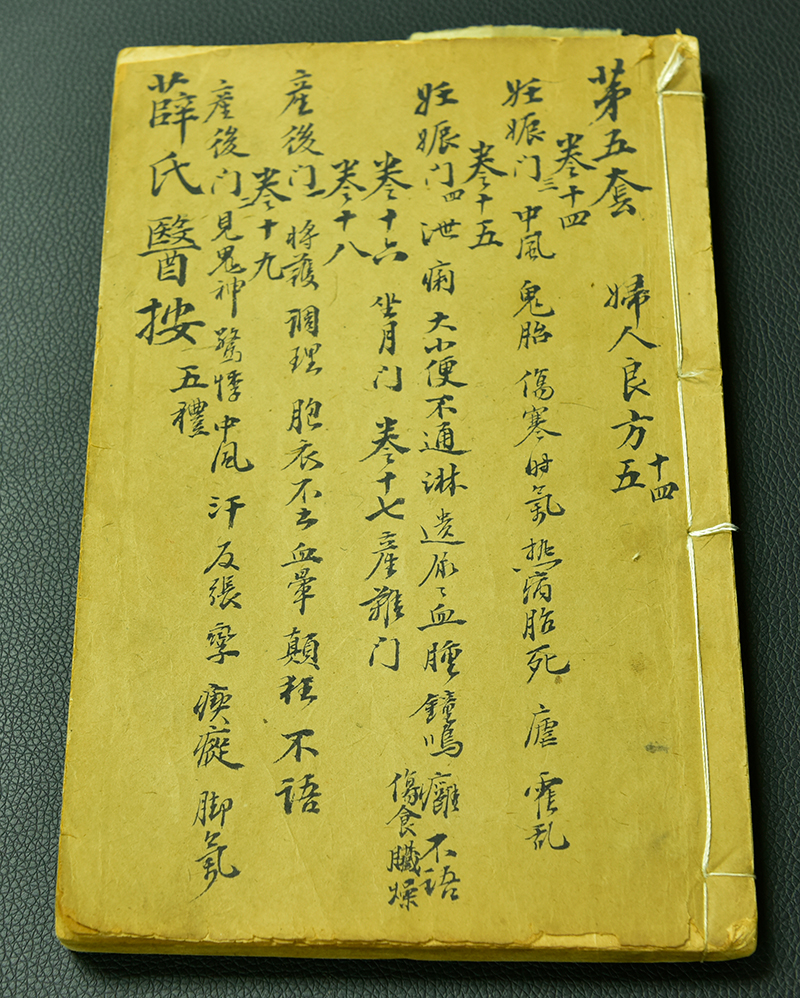 苐五套 婦人良方五
十四
卷十四
妊娠门三 中風 鬼胎 傷寒时氣 热病胎死 虐 霍乱
卷十五
妊娠门四 泄 痢 大小便不通 淋 遗尿〻血 腫 鐘鳴 癰 不语
傷食臟燥
卷十六 坐月门 卷十七 産難门
卷十八
産後门一 将護 调理 胞衣不出 血暈 顛狂 不语
卷十九
産後门二 見鬼神 驚悸 中风 汗 反張 孪 瘲 脚氣
薛氏醫按 五禮